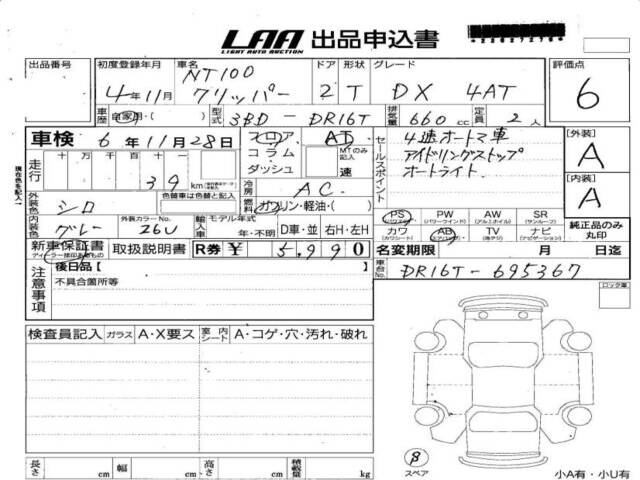 LAA 出品申込書
LIGHT AUTO AUCTION
*22827278*
出品番号 初度登録年月 車名 ドア 形状 グレード 評価点
4年11月 NT100 クリッパー 2 T DX 4AT 6
車歴 自家用・( ) 型式 3BD - DR16T 排気量 660 cc 定員 2 人
車検 6年11月28日 フロア コラム・ダッシュ AT MTのみ記入 速
セールスポイント 4速オートマ車
アイドリングストップ
オートライト
[外装] A
[内装] A
走行 十 万 千 百 十 一
39 km
冷房 AC
燃料 ガソリン・軽油・( )
外装色 シロ 色替車は色替と記入
内装色 グレー 外装カラーNo. 26U 輸入車 モデル年式 年・不明 D車・並 右H・左H
PS (パワステ) PW (パワーウインド) AW (アルミホイル) SR (サンルーフ)
カワ (カワシート) AB (エアバッグ) TV (地デジ) ナビ (ナビゲーション)
純正品のみ丸印
現在色を記入
新車保証書 ディーラー捺印あるもの 取扱説明書 R券 ¥ 5,990
名変期限 月 日迄
車台No. DR16T-695367
注意事項 後日品[ ]
不具合箇所等
ロック車
検査員記入 ガラス A・X要ス 室内シート A・コゲ・穴・汚れ・破れ
長さ cm 幅 cm 高さ cm 積載量 kg
スペア
小A有・小U有